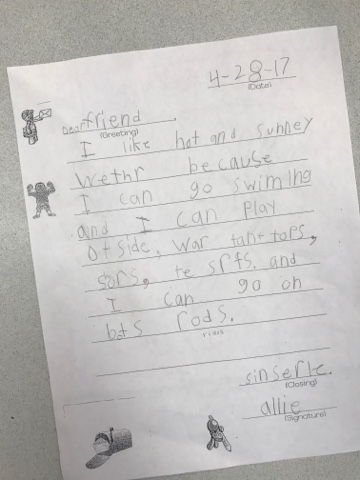 4-28-17
(Date)
Dear friend.
(Greeting)
I like hot and sunney
wethr because
I can go swiming
and I can play
otside, war tanktops,
sors, te srts. and
I can go on
bots rods.
rides
sinserle.
(Closing)
allie
(Signature)